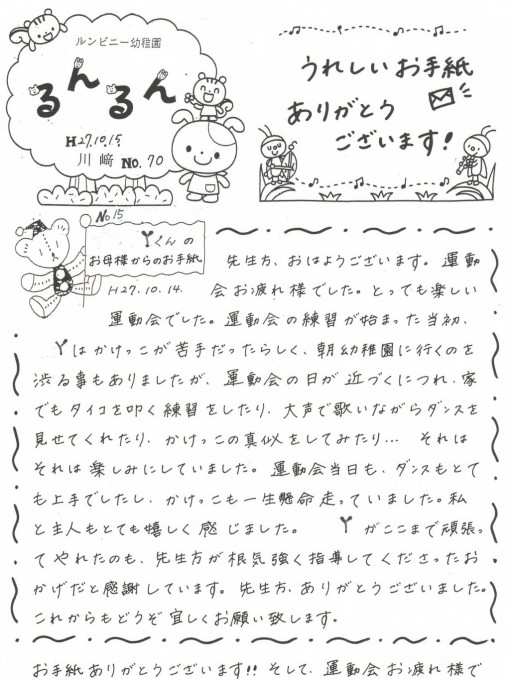 ルンビニー幼稚園
るんるん
H27.10.15
川﨑 No. 70
うれしいお手紙
ありがとう
ございます!
No15
Yくんの
お母様からのお手紙
H27.10.14.
先生方、おはようございます。運動
会お疲れ様でした。とっても楽しい
運動会でした。運動会の練習が始まった当初、
Yはかけっこが苦手だったらしく、朝幼稚園に行くのを
渋る事もありましたが、運動会の日が近づくにつれ、家
でもタイコを叩く練習をしたり、大声で歌いながらダンスを
見せてくれたり、かけっこの真似をしてみたり… それは
それは楽しみにしていました。運動会当日も、ダンスもとて
も上手でしたし、かけっこも一生懸命走っていました。私
と主人もとても嬉しく感じました。 Yがここまで頑張っ
てやれたのも、先生方が根気強く指導してくださったお
かげだと感謝しています。先生方、ありがとうございました。
これからもどうぞ宜しくお願い致します。
お手紙ありがとうございます!! そして、運動会お疲れ様で